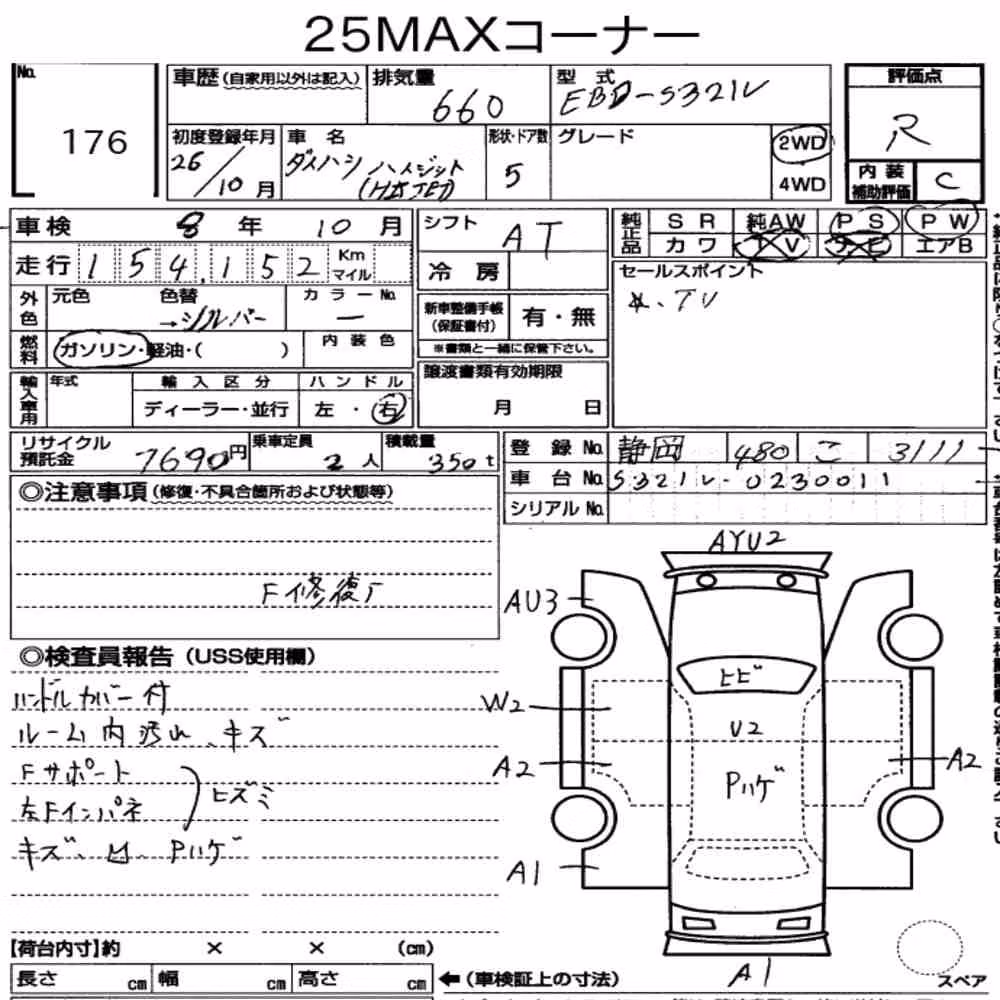 25MAXコーナー
No.
176
車歴 (自家用以外は記入)
排気量
660
型式
EBD-S321V
評価点
R
内装
補助評価
C
初度登録年月
26/10月
車名
ダイハツ ハイゼット
(HIJET)
形状・ドア数
5
グレード
2WD
4WD
車検 8年 10月
走行 154,152 Km
マイル
外色
元色
色替
→シルバー
カラーNo.
ー
燃料
ガソリン・軽油・( )
内装色
輸入車用
年式
輸入区分
ディーラー・並行
ハンドル
左・右
リサイクル
預託金
7690円
乗車定員
2人
積載量
350t
シフト
AT
冷房
新車整備手帳
(保証書付)
有・無
※書類と一緒に保管下さい。
譲渡書類有効期限
月 日
純正品
SR 純AW PS PW
カワ TV ナビ エアB
セールスポイント
TV
登録No. 静岡 480 こ 3111
車台No. S321V-0230011
シリアルNo.
◎注意事項 (修復・不具合箇所および状態等)
F修復
◎検査員報告 (USS使用欄)
ハンドルカバー付
ルーム内汚れ、キズ
Fサポート
左Fインパネ
ヒズミ
キズ、凹、Pハゲ
AYU2
AU3
ヒビ
W2
U2
A2
Pハゲ
A2
A1
A1
【荷台内寸】約 × × (cm)
長さ cm 幅 cm 高さ cm
←(車検証上の寸法)
スペア